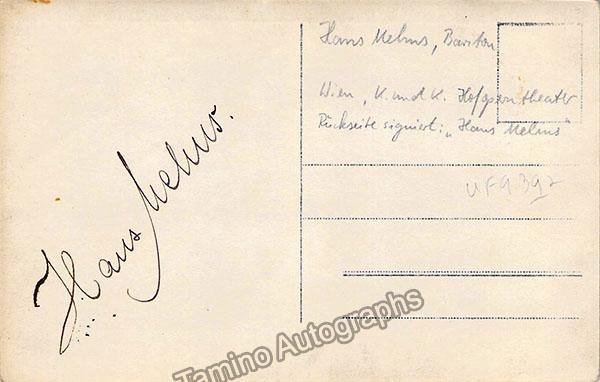 Hans Melms.
Hans Melms, Bariton
Wien, K. und K. Hofoperntheater
Rückseite signiert: „Hans Melms"
UF9392
Tamino Autographs